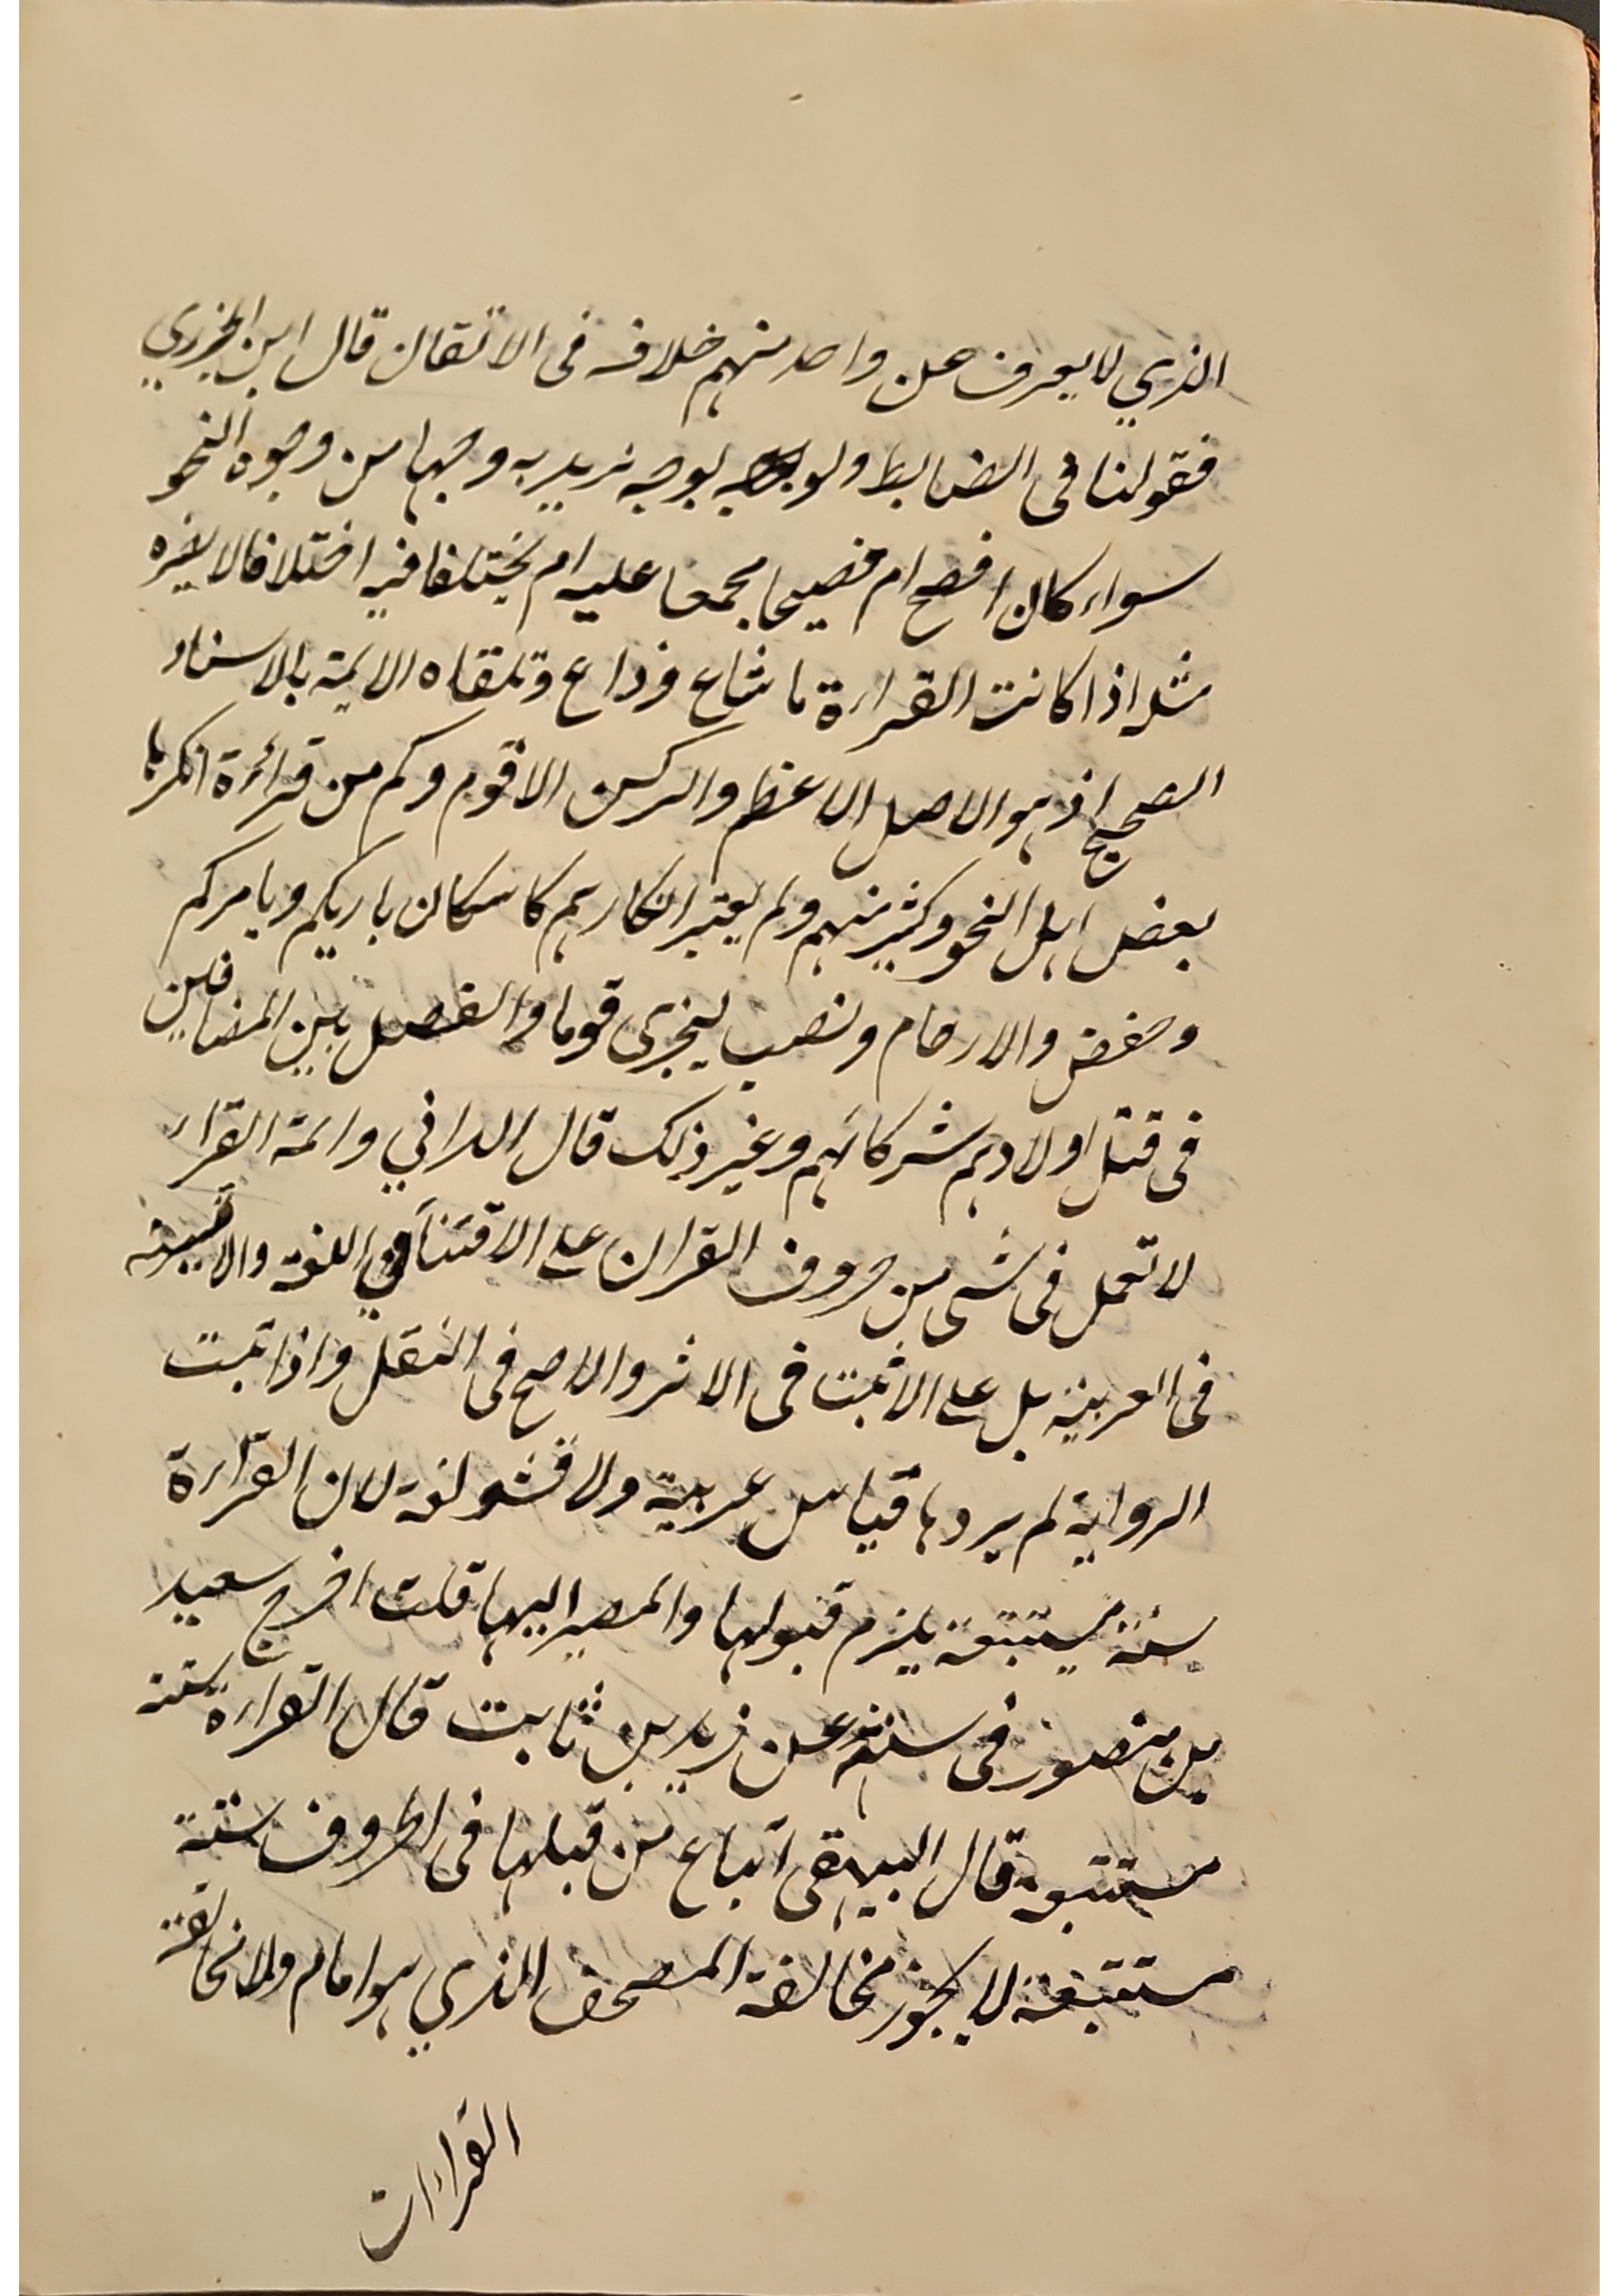 الذي لا يعرف عن واحد منهم خلافه فى الاتقان قال ابن الجزري
فقولنا فى الضابط ولو بوجه نريد به وجها من وجوه النحو
سواء كان افصح ام فصيحا مجمعا عليه ام مختلفا فيه اختلافا لا يضره
مثله اذا كانت القراءة ما شاع وذاع وتلقاه الايمة بالاسناد
الصحيح اذ هو الاصل الاعظم والركن الاقوم وكم من قراءة انكرها
بعض اهل النحو وكثير منهم ولم يعتبر انكارهم كاسكان باريكم ويامركم
وخفض والارحام ونصب ليجزى قوما والفصل بين المضافين
فى قتل اولادهم شركائهم وغير ذلك قال الداني وائمة القراء
لا تعمل فى شى من حروف القران على الافشا في اللغة والاقيسة
فى العربية بل على الاثبت فى الاثر والاصح فى النقل واذا ثبت
الرواية لم يردها قياس عربية ولا فشو لغة لان القراءة
سنة متبعة يلزم قبولها والمصير اليها قلت اخرج سعيد
بن منصور فى سننه عن زيد بن ثابت قال القراءة سنة
متبعة قال البيهقى اتباع من قبلها فى الحروف سنة
متبعة لا يجوز مخالفة المصحف الذي هو امام ولا مخالفة
القراءات